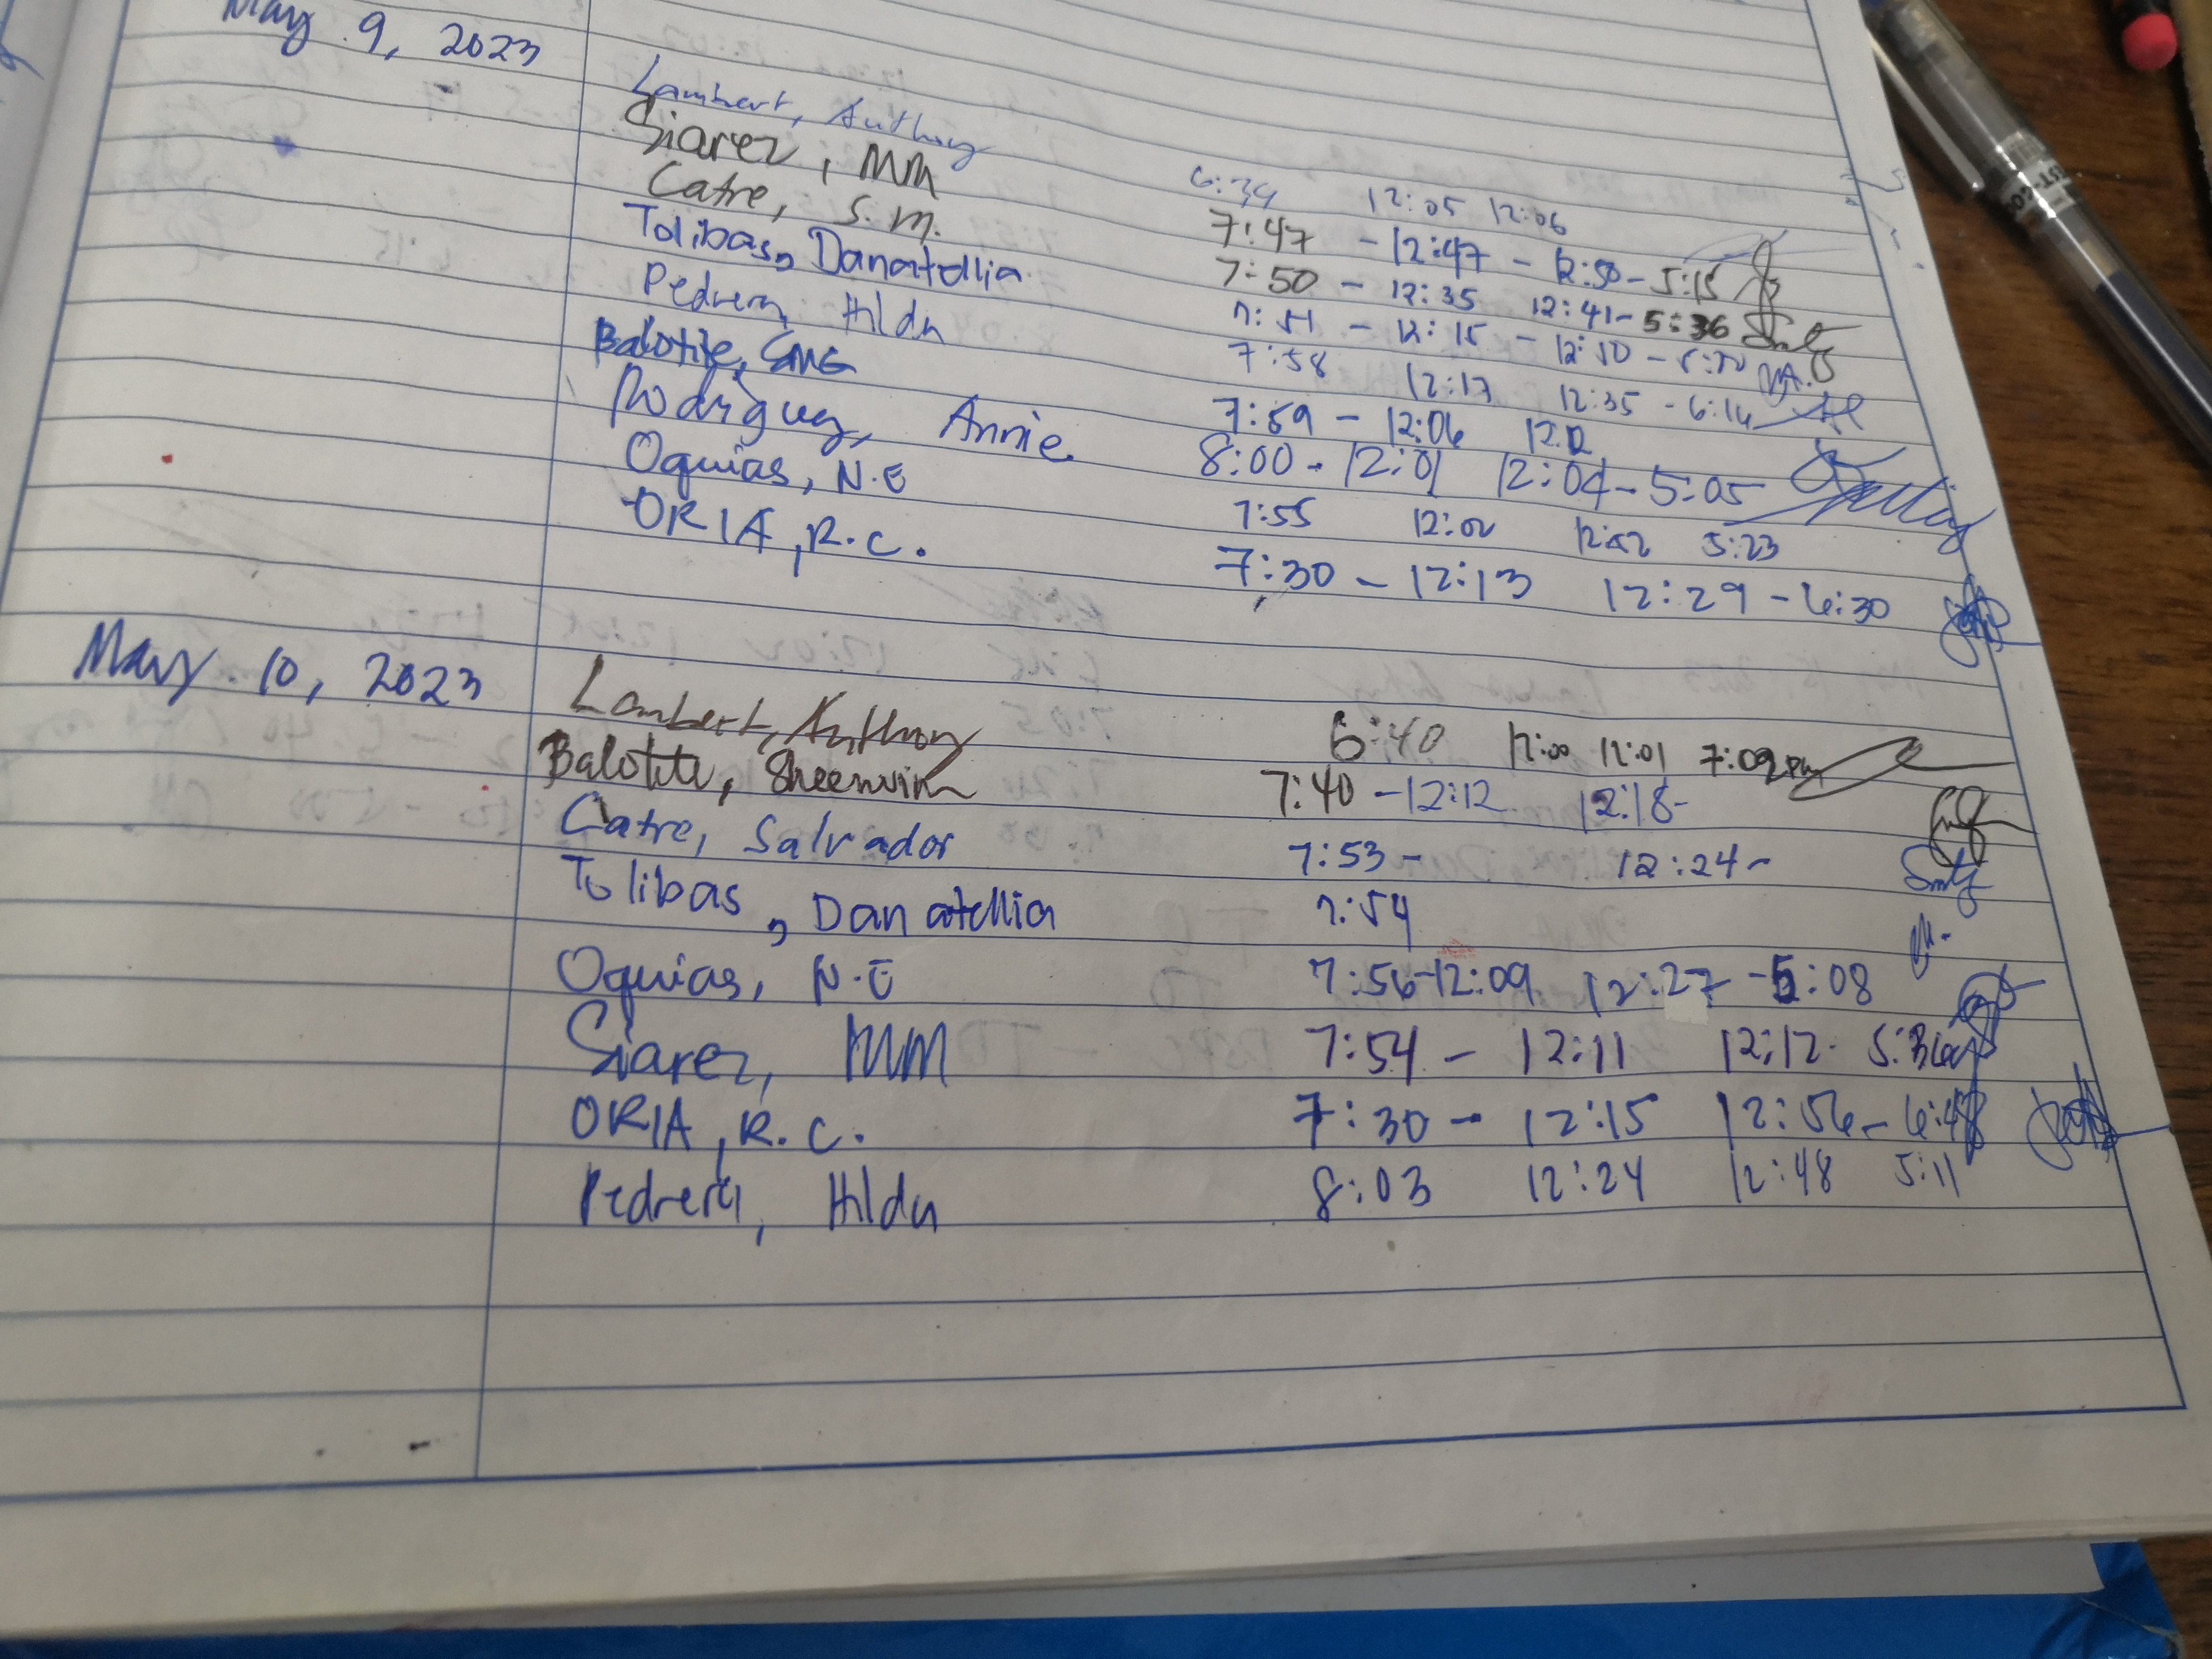 May 9, 2023
Lambert, Anthony 6:34 12:05 12:06
Siarez, MM 7:47 - 12:47 - 12:50 - 5:15
Catre, S.M. 7:50 - 12:35 12:41 - 5:36
Tolibas, Danatellia 7:51 - 12:15 - 12:50 -
Pedrera, Hilda 7:58 12:17 12:35 - 6:16
Balotite, 7:59 - 12:06 12:12
Rodriguez, Annie 8:00 - 12:01 12:04 - 5:05
Oquias, N.E 7:55 12:02 12:52 5:23
ORIA, R.C. 7:30 - 12:13 12:29 - 6:30
May 10, 2023
Lambert, Anthony 6:40 12:00 12:01 7:09pm
Balotite, Sheenvim 7:40 - 12:12 12:18 -
Catre, Salvador 7:53 - 12:24 -
Tolibas, Danatellia 7:54
Oquias, N.E 7:56 - 12:09 12:27 - 5:08
Siarez, MM 7:54 - 12:11 12:12
ORIA, R.C. 7:30 - 12:15 12:56 - 6:48
Pedrera, Hilda 8:03 12:24 12:48 5:11